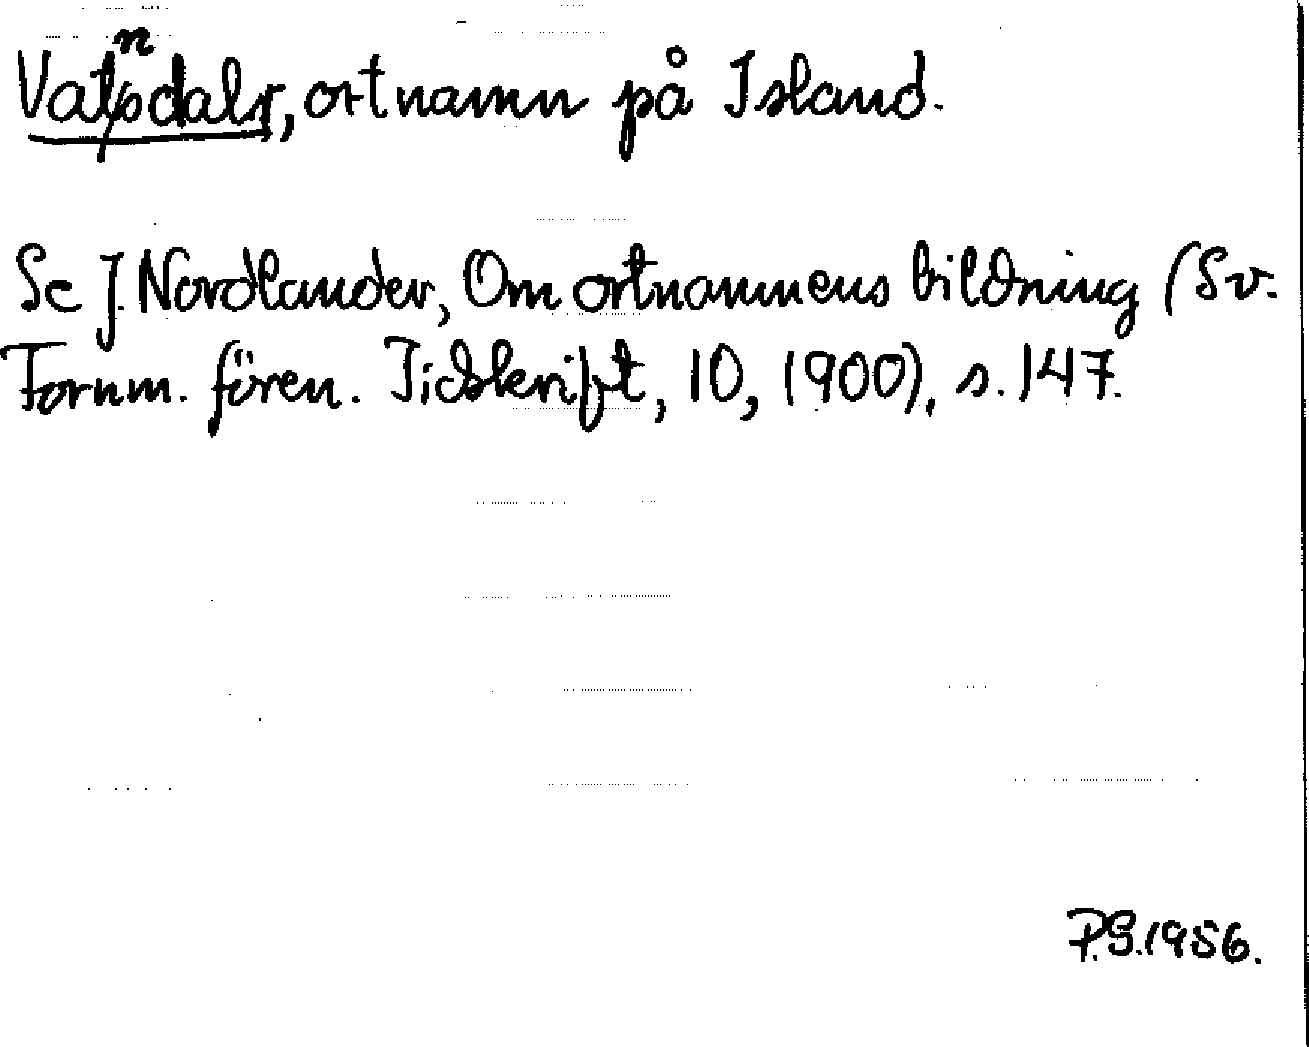 Vatnsdalr, ortnamn på Island.
Se J. Nordlander, Om ortnamnens bildning (Sv.
Fornm. fören. Tidskrift, 10, 1900), s. 147.
P.G. 1956.